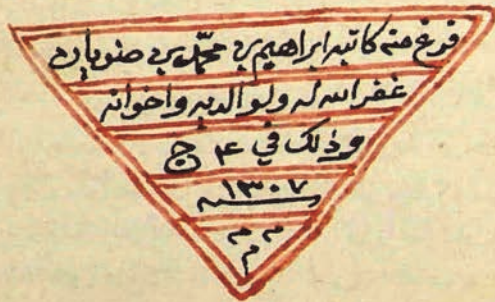 فرغ منه كاتبه ابراهيم بن محمد بن ضويان
غفر الله له ولوالديه واخوانه
وذلك في ٤ ج
سنه ١٣٠٧
م م م